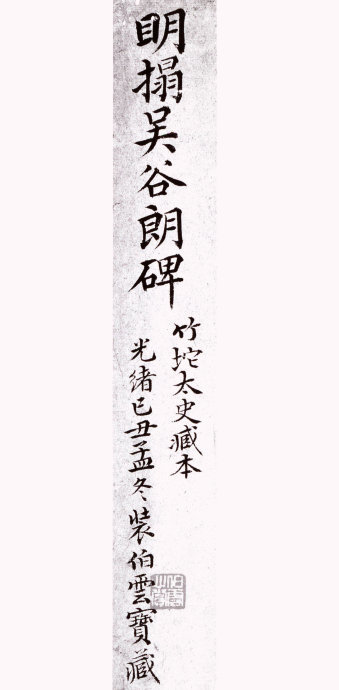 明搨吳谷朗碑
竹垞太史藏本
光緒己丑孟冬裝伯雲寶藏